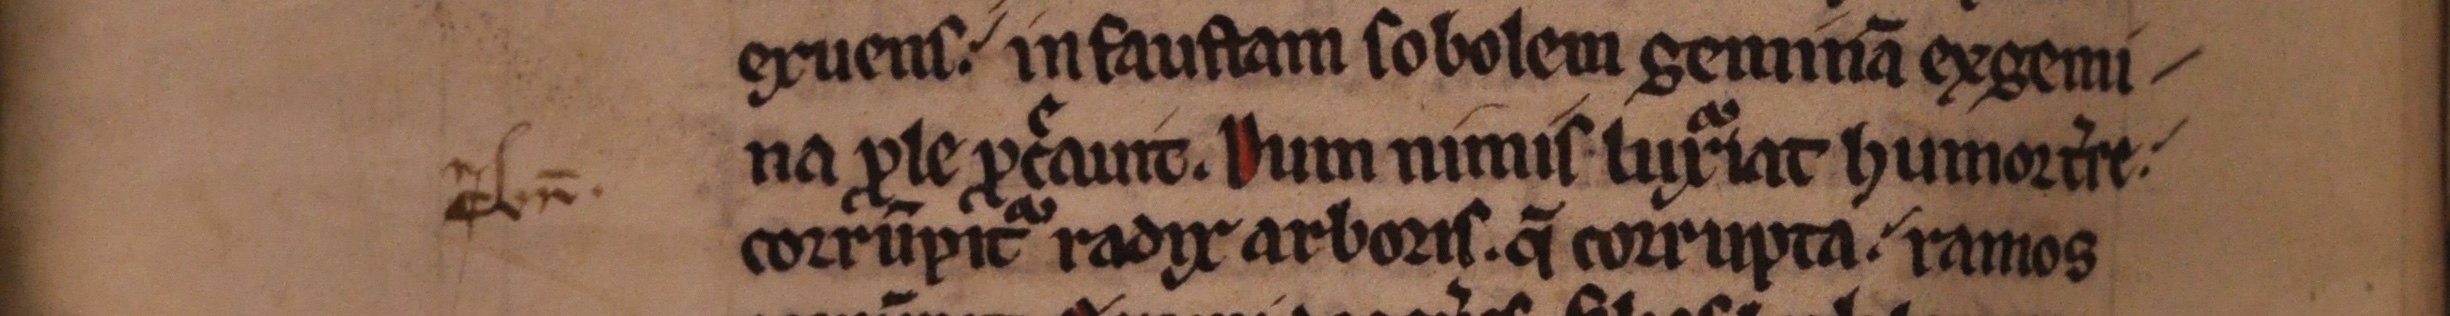 exuens. infaustam sobolem geminā exgemi
na ꝓle ꝓcͨauit. Dum nimis luxͣiat humor t̉re.
corrūpitͣ radix arboris. q̄ corrupta. ramos